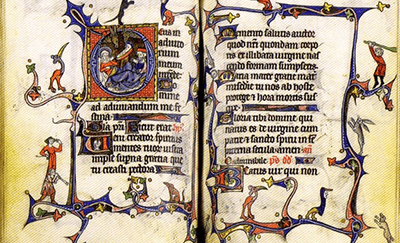 eus in
ad adiuuandum me fe
stina
Gloria pri Sicut erat
eni creator spiritus
mentes tuorum uisita
imple superna gratia que
tu creasti pectora
emento salutis auctor
quod nri quondam corpo
ris ex illibata uirgine nas
cendo formam sumpseris
Maria mater gratie mater
tu nos ab hoste
protege et hora mortis susci
pe
Gloria tibi domine qui
natus es de uirgine cum
patre et sancto spiritu in
amen
admirabile ps dd
Beatus uir qui non